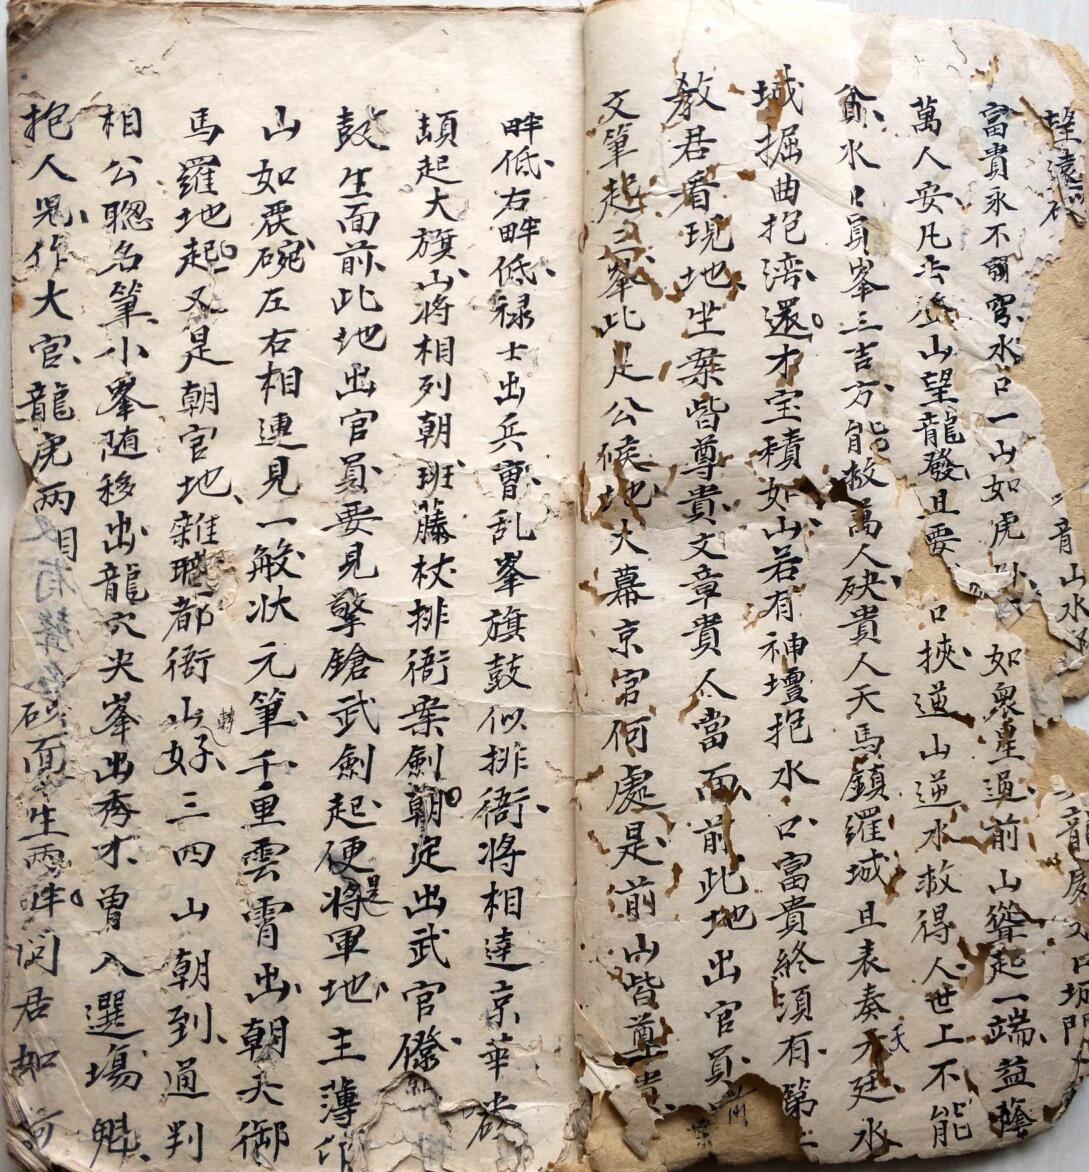 望遠
音山水
龍處水口城門
富貴永不窮水口一山如虎卧
如衆星過前山聳起一端益蔭
萬人安凡去登山望龍發且要
口挾道山逆水救得人世上不能
貧水口員峯三吉方能救萬人殃貴人天馬鎮羅城且表奏天廷水
城掘曲抱湾還才宝積如山若有神壇抱水口富貴終須有第二
教君看現地坐案皆尊貴文章貴人當面前此地出官員
文筆起三峯此是公候地大幕京官何處是前山皆尊貴
畔低右畔低禄士出兵曹乱峯旗鼓似排衙將相達京華
頡起大旗山將相列朝班藤杖排衙案劍朝定出武官
鼓生面前此地出官員要見擎鎗武劍起硬將是軍地主薄作
山如覆碗左右相連見一般状元筆千里雲霄出朝天御
馬羅地起又是朝官地雜職都衙山轉好三四山朝到通判
相公聰名筆小峯随移出龍穴尖峯出秀才曾入選塲魁
抱人兒作大官龍虎兩相
砂面生兩畔問君如何